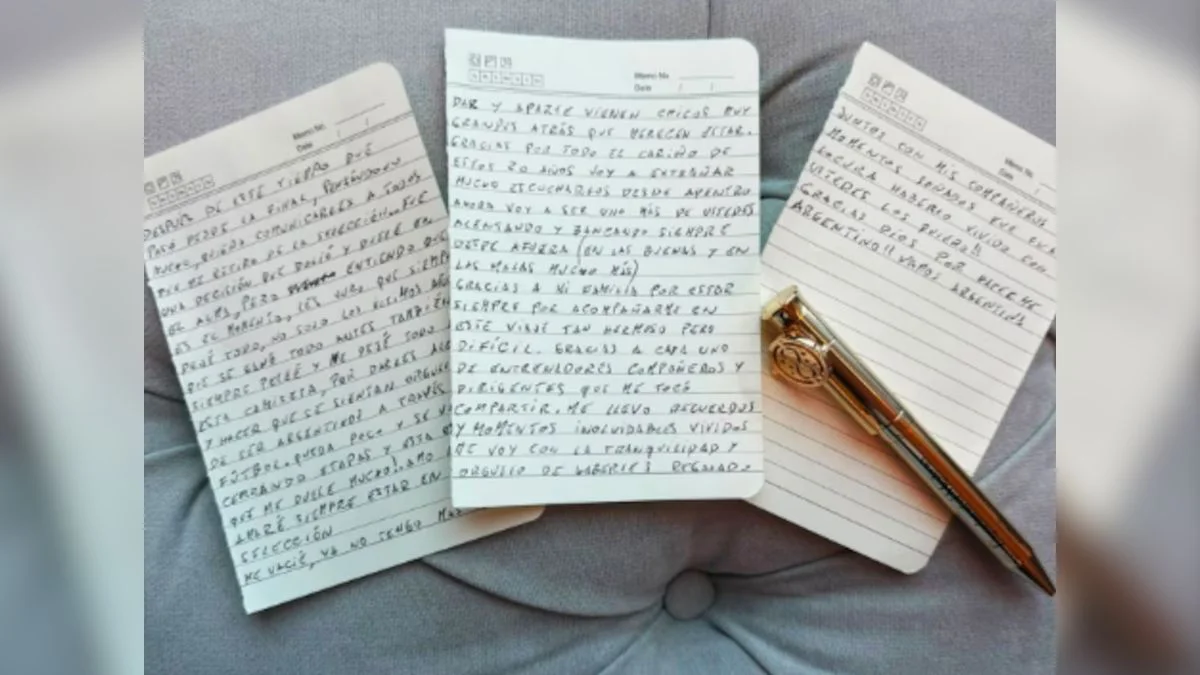 Memo No.
Date / /
DESPUES DE ESTE TIEMPO QUE
PASÓ DESDE LA FINAL, PENSÁNDOLO
MUCHO, QUIERO COMUNICARLES A TODOS
QUE ME RETIRO DE LA SELECCIÓN. FUE
UNA DECISIÓN QUE DOLIÓ Y DUELE EN
EL ALMA, PERO ENTIENDO QUE
ES EL MOMENTO, LES JURO QUE SIEMPRE
DEJÉ TODO, NO SOLO LOS ULTIMOS AÑ
QUE SE GANÓ TODO ANTES TAMBIÉN
SIEMPRE PELEÉ Y ME DEJÉ TODO
ESTA CAMISETA, POR DARLES ALE
Y HACER QUE SE SIENTAN ORGULL
DE SER ARGENTINOS A TRAVÉS
FÚTBOL. QUEDA POCO Y SE V
CERRANDO ETAPAS Y ESTA
QUE ME DUELE MUCHO!. AMO
AMARÉ SIEMPRE ESTAR EN
SELECCIÓN
ME VACIÉ, YA NO TENGO MÁS
Memo No.
Date / /
DAR Y APARTE VIENEN CHICOS MUY
GRANDES ATRÁS QUE MERECEN ESTAR.
GRACIAS POR TODO EL CARIÑO DE
ESTOS 20 AÑOS VOY A EXTRAÑAR
MUCHO ESCUCHARLOS DESDE ADENTRO
AHORA VOY A SER UNO MÁS DE USTEDES
ALENTANDO Y BANCANDO SIEMPRE
DESDE AFUERA (EN LAS BUENAS Y EN
LAS MALAS MUCHO MÁS)
GRACIAS A MI FAMILIA POR ESTAR
SIEMPRE POR ACOMPAÑARME EN
ESTE VIAJE TAN HERMOSO PERO
DIFÍCIL. GRACIAS A CADA UNO
DE ENTRENADORES COMPAÑEROS Y
DIRIGENTES QUE ME TOCÓ
COMPARTIR. ME LLEVO RECUERDOS
Y MOMENTOS INOLVIDABLES VIVIDOS
ME VOY CON LA TRANQUILIDAD Y
ORGULLO DE HABERLES REGALADO
Memo No.
Date /
JUNTOS CON MIS COMPAÑEROS
MOMENTOS SOÑADOS FUE UNA
LOCURA HABERLO VIVIDO CON
USTEDES LOS QUIERO!!
GRACIAS DIOS POR HACERME
ARGENTINO!! VAMOS ARGENTINA